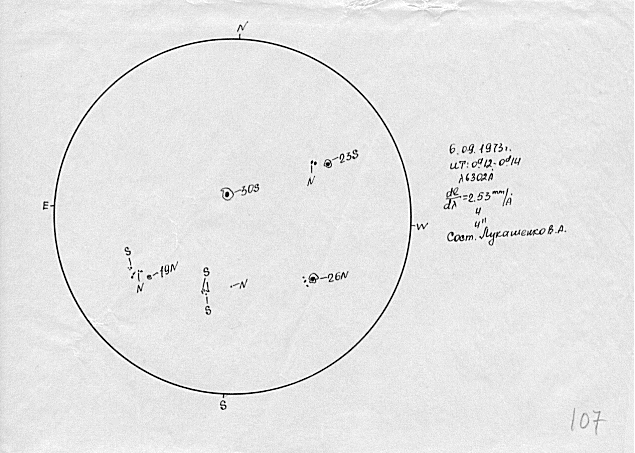 N
23S
N
30S
E
W
S
19N
N
S
N
S
26N
S
6.09.1973г.
UT: 0ᵈ12-0ᵈ14
λ6302Å
dl/dλ=2.53 mm/Å
4
4"
Сост. Лукашенко В.А.
107